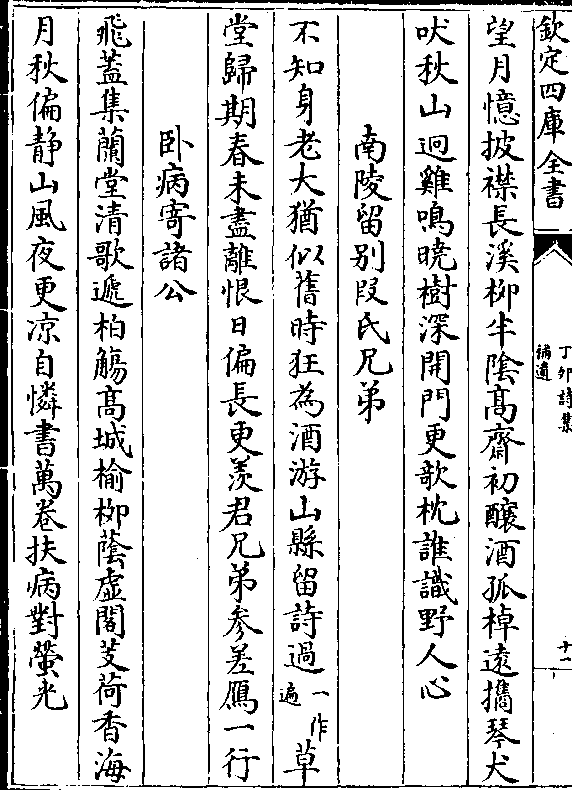 欽定四庫全書
丁卯詩集
補遺
十一
望月憶披襟長溪柳半陰髙齋初釀酒孤棹遠攜琴犬
吠秋山迥雞鳴曉樹深開門更欹枕誰識野人心
南陵留别段氏兄弟
不知身老大猶似舊時狂為酒游山縣留詩過一作遍草
堂歸期春未盡離恨日偏長更羨君兄弟參差鴈一行
卧病寄諸公
飛葢集蘭堂清歌遞柏觴髙城榆栁蔭虛閣芰荷香海
月秋偏静山風夜更凉自憐書萬卷扶病對螢光